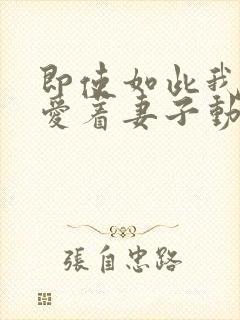 即使如此我
愛着妻子動
張自忠路